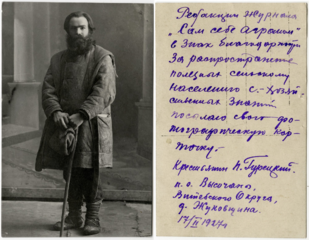 Редакции журнала
"Сам себе Агроном"
в знак благодарности
за распространение
полезных сельскому
населению с.-хозяй-
ственных знаний
посылаю свою фо-
тографическую кар-
точку.
Крестьянин Н. Гурецкий.
п.о. Высочаны,
Витебского Округа,
д. Жуковщина.
17/II 1927 г.